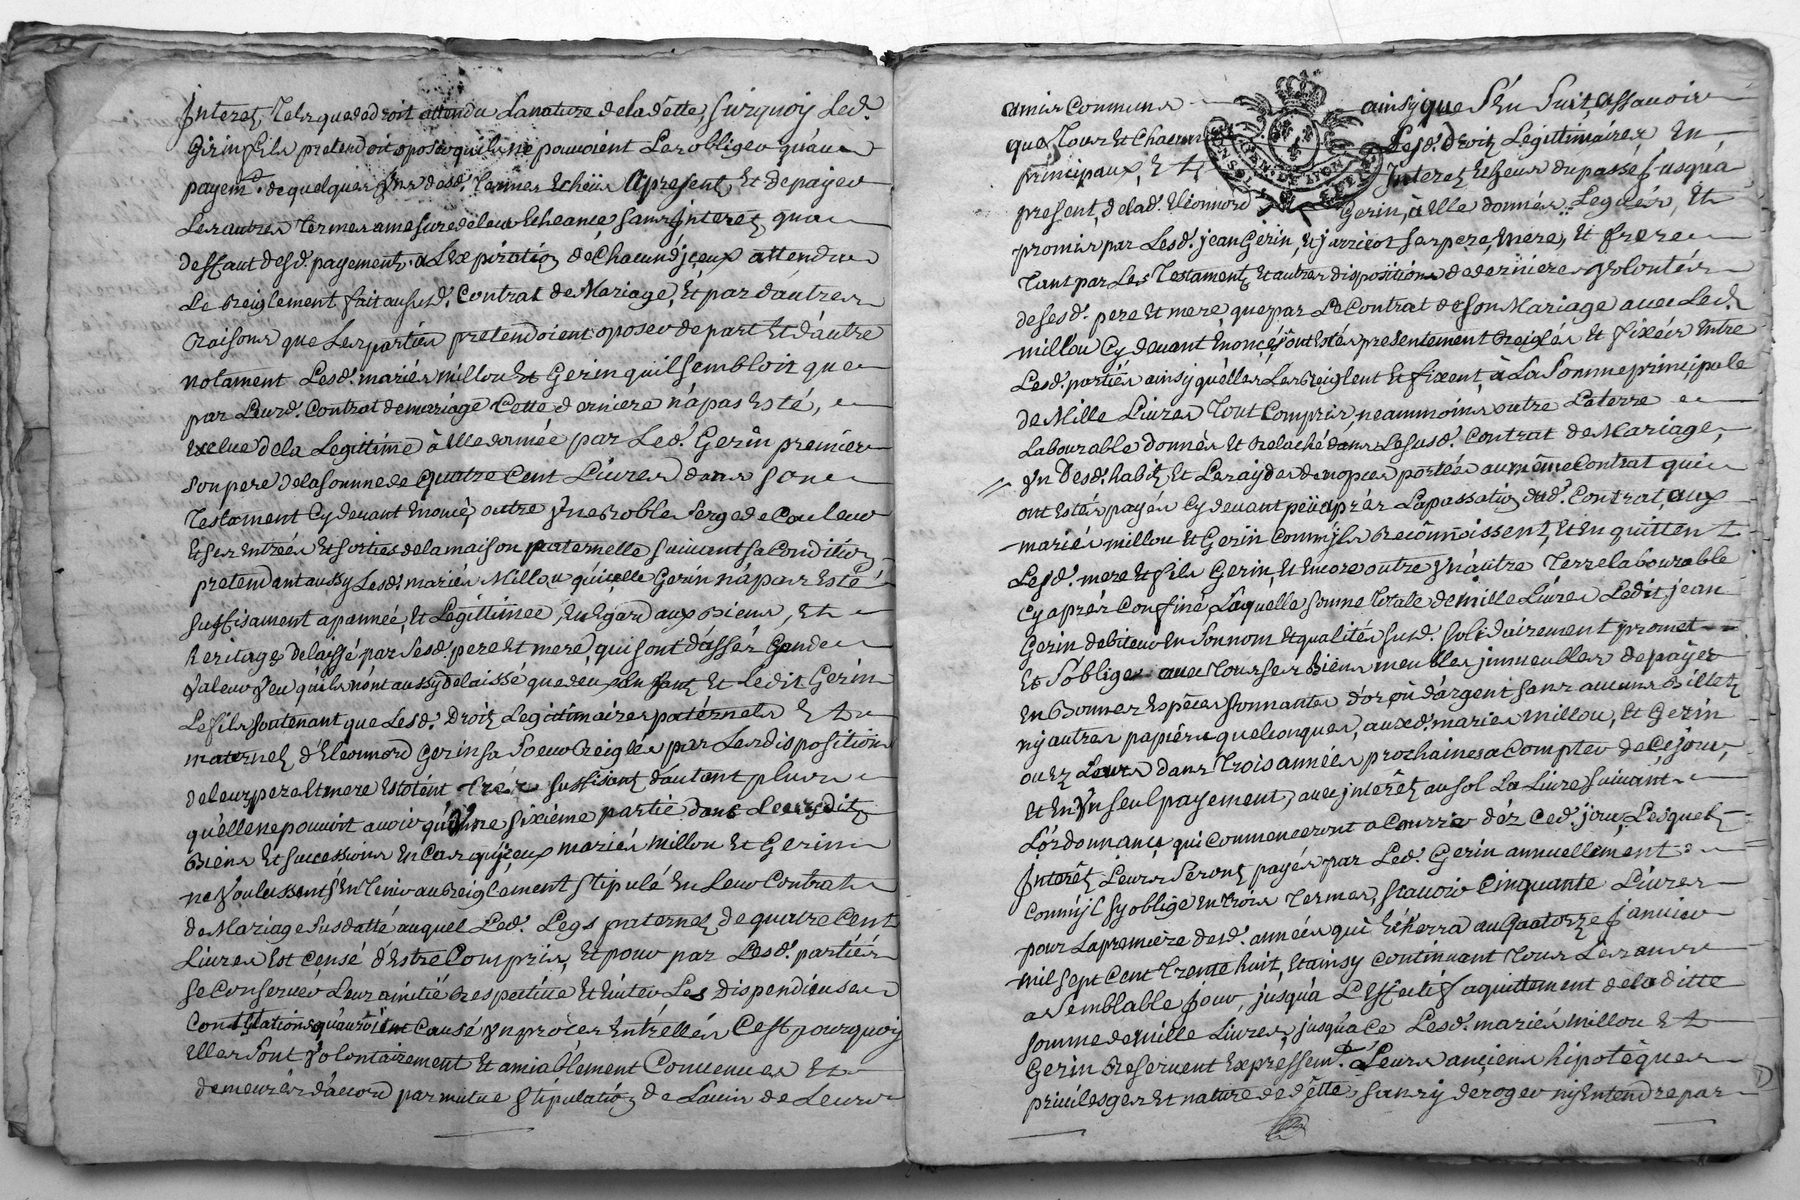 Interest, Telz que de droit attendu La nature de la dette, surquoy Led.
Gerin fils pretendoit oposer quils ne pouvoient Les obliger quau
payemt. de quelques uns desd. Termes Echeus apresent, Et de payer
Les autres Termes a mesure de leur Echeance, sans Interest, qua
deffaut desd. payementz a L'Expiration de Chacun d'jceux attendu
Le Reiglement fait au susd. Contrat de Mariage, Et par d'autres
Raisons que Les parties pretendoient oposer de part Et d'autre
notament Lesd. mariés millou Et Gerin quil sembloit que
par Leurd. Contrat de mariage Cette derniere n'a pas Esté,
Exclue de la Legittime à Elle donnée par Led. Gerin premier
son pere de la somme de quatre Cent Livres dans son
Testament Cy devant Enoncé, outre une Robbe serge de Couleur
Et ses Entrées Et sorties de la maison paternelle suivant sa Condition
pretendant aussy Lesd. mariés Millou qu'icelle Gerin n'a pas Esté
suffisament apannée, Et Legittimée, Eu Egard aux Biens, Et
heritages delaissé par sesd. pere Et mere, qui sont d'assés Grande
valeur veu qu'ils n'ont aussy delaissé que deux enfans Et Ledit Gerin
Le fils soutenant que Lesd. Droitz Legitimaires paternels Et
maternelz d'Eleonnord Gerin sa soeur Reiglés par Les disposition
de leur pere Et mere Estoient Trés suffisant d'autant plus
qu'elle ne pouvoit avoir qu'une sixiéme partie dans Leursditz
Biens Et successions En Cas qu'jceux mariés millou Et Gerin
ne voulussent s'En Tenir au Reiglement stipulé En Leur Contrat
de Mariage susdatté auquel Led. Legs paternel de quatre Cent
Livres Est censé d'Estre Compris, Et pour par Lesd. parties
se Conserver Leur amitié Respective Et Eviter Les Dispendieuses
Contestations qu'auroient Causé un procès Entr'elles C'est pourquoy
Elles sont volontairement Et amiablement Convenues Et
demeurées d'acord par mutue stipulation de L'avis de Leurs
amis Communs ainsy que s'En suit, assavoir
que Tous Et Chacuns Lesd. droitz Legittimaires En
principaux, Et Interetz Echeus du passé jusqu'à
present, de lad. Eleonnord Gerin, à Elle donnés Legués, Et
promis par Lesd. jean Gerin, Et jarricot ses pere, mere, Et frere
Tant par Les Testament, Et autres dispositions de dernieres volontés
de sesd. pere Et mere, que par Le Contrat de son Mariage avec Led.
millou Cy devant Enoncé, ont Estés presentement Reiglés Et fixées Entre
Lesd. parties ainsy qu'elles Les Reiglent Et fixent, à La Somme principale
de Mille Livres Tout Compris, neammoins outre La terre
Labourable donnés Et Relaché dans Le susd. Contrat de Mariage,
un Desd. habitz, Et Les aydes de nopces portés au même Contrat qui
ont Estés payés Cy devant peü aprés La passation dud. Contrat, aux
mariés millou Et Gerin Comm'jls Reconnoissent, Et En quittent
Lesd. mere Et fils Gerin, Et Encore outre un'autre Terre labourable
Cy aprés Confiné, Laquelle somme Totale de mille Livres Ledit jean
Gerin debiteur En son nom Et qualités susd. solidairement promet
Et s'oblige avec Tous ses Biens meubles jmmeubles de payer
En Bonnes Especes sonnantes d'or ou d'argent sans aucuns Billetz
ny autres papiers quelconques, auxd. mariés Millou, Et Gerin
ou Es Leurs dans Trois années prochaines a Compter de Ce jour,
Et En un seul payement, avec jnterêtz au sol La Livre suivant
L'ordonnance qui Commenceront a Courrir d'éz Ced. jour, Lesquelz
Jnterêtz Leurs seront payés par Led. Gerin annuellement
Comm'jl s'y oblige En Trois Termes, scavoir Cinquante Livres
pour La premiere desd. années qui Echerra au Quatorze janvier
mil sept Cent Trente huit, Et ainsy Continuant Tous Les ans
a semblable jour, jusqu'a L'Effectif aquittement de la ditte
somme de mille Livres, jusqua Ce Lesd. mariés millou Et
Gerin Reservent Expressemt. Leurs anciens hipotêques
privileges Et nature de dette sans y deroger ny Entendre par